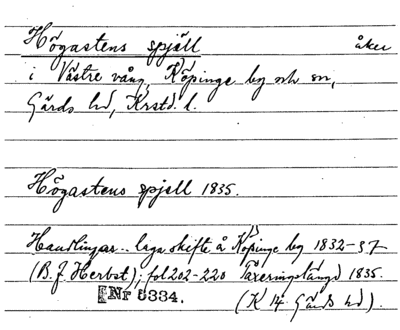 Högastens spjäll åker
i Västre vång, Köpinge by och sn,
Gärds hd, Krstd. l.
Högastens spjell 1835.
Handlingar .. laga skifte å Köpinge by 1832-37
(B. J. Herbst); fol 202-220 Taxeringslängd 1835.
Nr 5334. (K 14 Gärds hd).